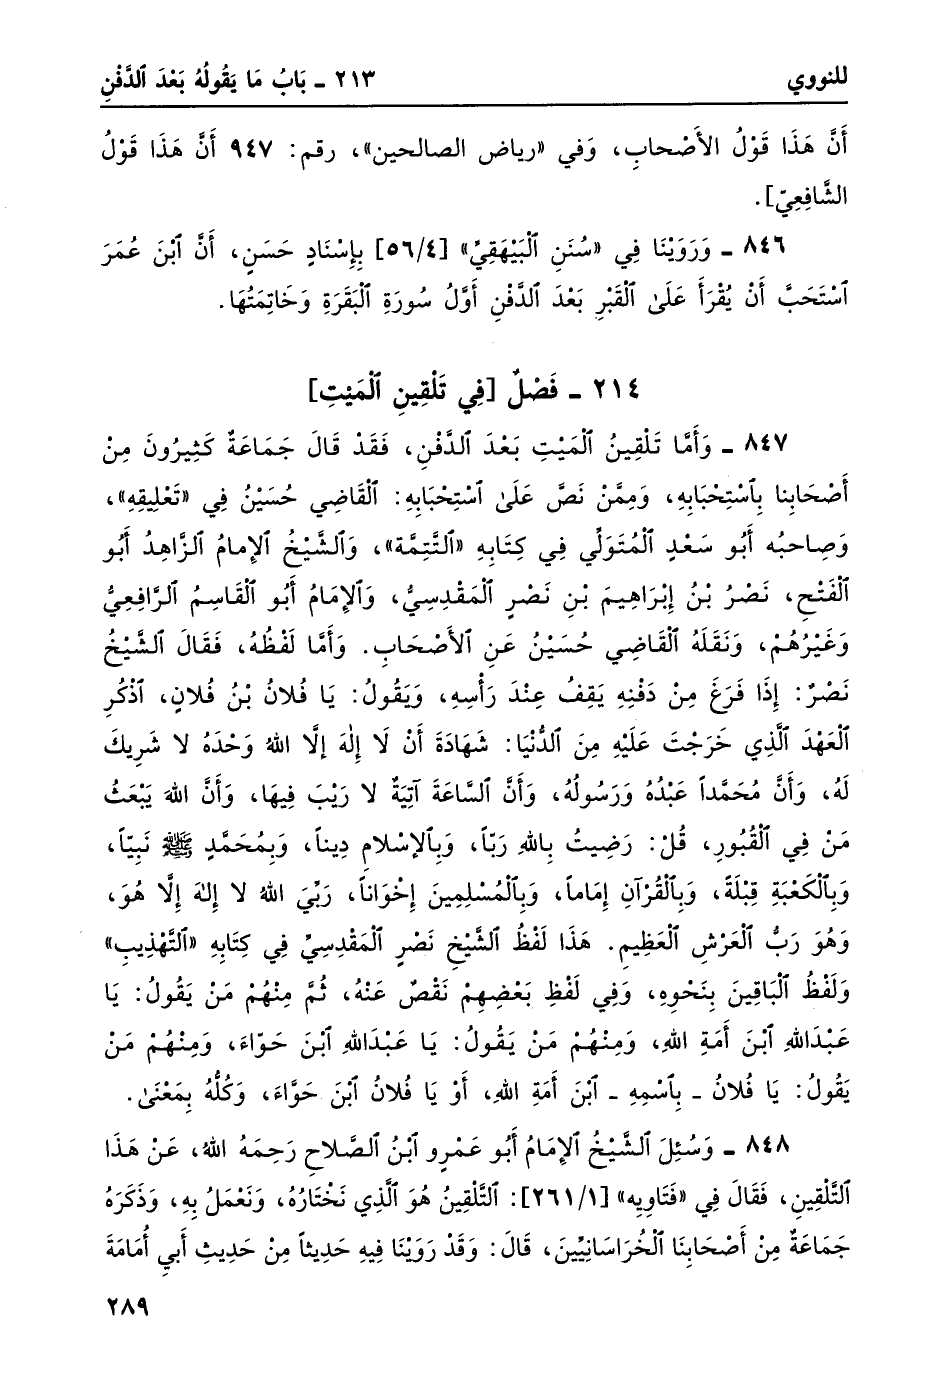 للنووي ٢١٣ ـ بَابُ مَا يَقُولُهُ بَعْدَ ٱلدَّفْنِ
أَنَّ هَذَا قَوْلُ الأَصْحابِ، وَفي «رياض الصالحين»، رقم: ٩٤٧ أَنَّ هَذَا قَوْلُ
الشَّافِعِيّ].
٨٤٦ ـ وَرَوَيْنَا فِي «سُنَنِ ٱلْبَيْهَقِيِّ» [٥٦/٤] بِإِسْنَادٍ حَسَنٍ، أَنَّ ٱبْنَ عُمَرَ
ٱسْتَحَبَّ أَنْ يُقْرَأَ عَلَىٰ ٱلْقَبْرِ بَعْدَ ٱلدَّفْنِ أَوَّلُ سُورَةِ ٱلْبَقَرَةِ وَخَاتِمَتُهَا.
٢١٤ ـ فَصْلٌ [فِي تَلْقِينِ ٱلْمَيْتِ]
٨٤٧ ـ وَأَمَّا تَلْقِينُ ٱلْمَيْتِ بَعْدَ ٱلدَّفْنِ، فَقَدْ قَالَ جَمَاعَةٌ كَثِيرُونَ مِنْ
أَصْحَابِنا بِٱسْتِحْبَابِهِ، وَمِمَّنْ نَصَّ عَلَىٰ ٱسْتِحْبَابِهِ: ٱلْقَاضِي حُسَيْنُ فِي «تَعْلِيقِهِ»،
وَصِاحبُه أَبُو سَعْدٍ ٱلْمُتَوَلِّي فِي كِتَابِهِ «ٱلتَّتِمَّة»، وَٱلشَّيْخُ ٱلإِمامُ ٱلزَّاهِدُ أَبُو
ٱلْفَتْحِ، نَصْرُ بْنُ إِبْرَاهِيمَ بْنِ نَصْرٍ ٱلْمَقْدِسِيُّ، وَٱلإِمَامُ أَبُو ٱلْقَاسِمُ ٱلرَّافِعِيُّ
وَغَيْرُهُمْ، وَنَقَلَهُ ٱلْقَاضِي حُسَيْنُ عَنِ ٱلأَصْحَابِ. وَأَمَّا لَفْظُهُ، فَقَالَ ٱلشَّيْخُ
نَصْرٌ: إِذَا فَرَغَ مِنْ دَفْنِهِ يَقِفُ عِنْدَ رَأْسِهِ، وَيَقُولُ: يَا فُلَانُ بْنُ فُلانٍ، ٱذْكُرِ
ٱلْعَهْدَ ٱلَّذِي خَرَجْتَ عَلَيْهِ مِنَ ٱلدُّنْيَا: شَهَادَةَ أَنْ لَا إِلٰهَ إلَّا اللهُ وَحْدَهُ لا شَرِيكَ
لَهُ، وَأَنَّ مُحَمَّداً عَبْدُهُ وَرَسُولُهُ، وَأَنَّ ٱلسَّاعَةَ آتِيَةٌ لا رَيْبَ فِيهَا، وَأَنَّ اللهَ يَبْعَثُ
مَنْ فِي ٱلْقُبُورِ، قُلْ: رَضِيتُ بِاللهِ رَبّاً، وَبِٱلإِسْلامِ دِيناً، وَبِمُحَمَّدٍ ﷺ نَبِيّاً،
وَبِٱلْكَعْبَةِ قِبْلَةً، وَبِٱلْقُرْآنِ إِمَاماً، وَبِٱلْمُسْلِمِينَ إِخْوَاناً، رَبِّيَ اللهُ لا إِلٰهَ إِلَّا هُوَ،
وَهُوَ رَبُّ ٱلْعَرْشِ ٱلْعَظِيمِ. هَذَا لَفْظُ ٱلشَّيْخِ نَصْرٍ ٱلْمَقْدِسِيِّ فِي كِتَابِهِ «ٱلتَّهْذِيبِ»
وَلَفْظُ ٱلْبَاقِينَ بِنَحْوِهِ، وَفِي لَفْظِ بَعْضِهِمْ نَقْصٌ عَنْهُ، ثُمَّ مِنْهُمْ مَنْ يَقُولُ: يَا
عَبْدَاللهِ ٱبْنَ أَمَةِ اللهِ، وَمِنْهُمْ مَنْ يَقُولُ: يَا عَبْدَاللهِ ٱبْنَ حَوَّاءَ، وَمِنْهُمْ مَنْ
يَقُولُ: يَا فُلَانُ ـ بِٱسْمِهِ ـ ٱبْنَ أَمَةِ اللهِ، أَوْ يَا فُلانُ ٱبْنَ حَوَّاءَ، وَكُلُّهُ بِمَعْنَىٰ.
٨٤٨ ـ وَسُئِلَ ٱلشَّيْخُ ٱلإِمَامُ أَبُو عَمْرٍو ٱبْنُ ٱلصَّلاحِ رَحِمَهُ اللهُ، عَنْ هَذَا
ٱلتَّلْقِينِ، فَقَالَ فِي «فَتَاوِيه» [٢٦١/١]: ٱلتَّلْقِينُ هُوَ ٱلَّذِي نَخْتَارُهُ، وَنَعْمَلُ بِهِ، وَذَكَرَهُ
جَمَاعَةٌ مِنْ أَصْحَابِنَا ٱلْخُرَاسَانِيِّينَ، قَالَ: وَقَدْ رَوَيْنَا فِيهِ حَدِيثاً مِنْ حَدِيثِ أَبِي أُمَامَةَ
٢٨٩